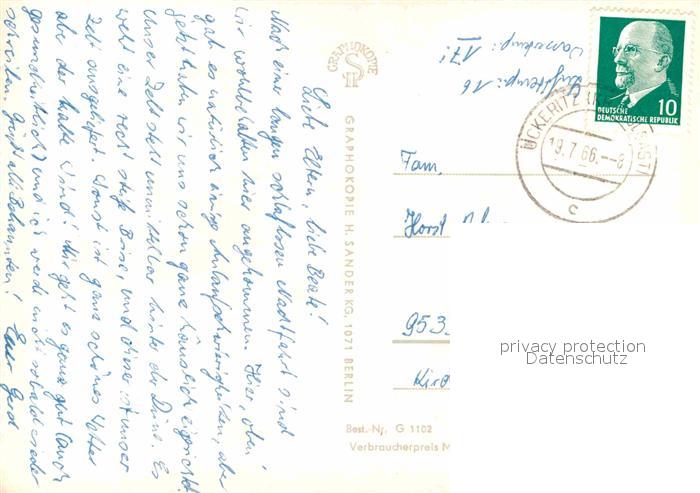 Liebe Eltern, liebe Beate!
Nach einer langen schlaflosen Nachtfahrt sind
wir wohlbehalten hier angekommen. Hier, oben
gab es natürlich einige Anlaufschwierigkeiten, aber
jetzt haben wir uns schon ganz häuslich eingerichtet.
Unser Zelt steht unmittelbar hinter der Düne. Es
weht eine recht steife Brise, und diese ist unser
Zelt ausgeliefert. Sonst ist ganz schönes Wetter
aber der kalte Wind! Mir geht es ganz gut (auch
gesundheitlich) und ich werde nicht sobald wieder
schreiben. Grüßt alle Bekannten! Euer Gerd
GRAPHOKOPIE
H S
GRAPHOKOPIE H. SANDER KG, 1071 BERLIN
Lufttemp.: 16
Wassertemp.: 17!
10
DEUTSCHE
DEMOKRATISCHE REPUBLIK
ÜCKERITZ
19.7.66.--8
c
Fam.
Horst
953
privacy protection
Datenschutz
Best.-Nr. G 1102
Verbraucherpreis M